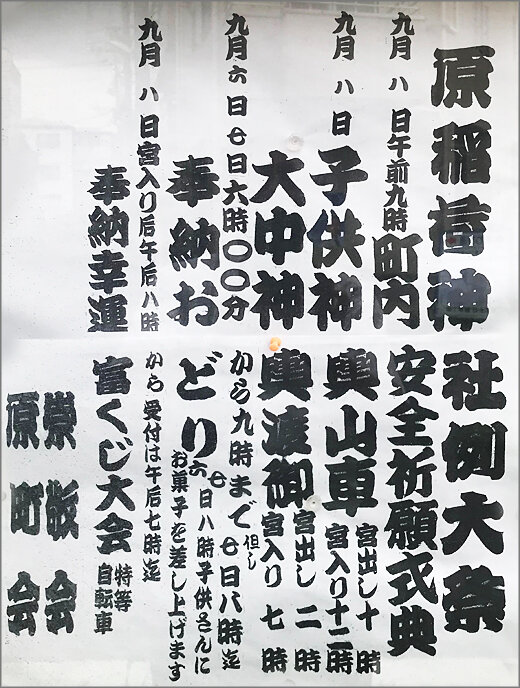 原稲荷神社例大祭
九月八日午前九時町内安全祈願式典
九月八日子供神輿山車宮出し十時
宮入り十二時
大中神輿渡御宮出し二時
宮入り七時
九月六日七日六時〇〇分から九時まで但し七日八時迄
奉納おどり六七日八時子供さんに
お菓子を差し上げます
九月八日宮入り后午后八時から受付は午后七時迄
奉納幸運富くじ大会特等
自転車
崇敬会
原町会